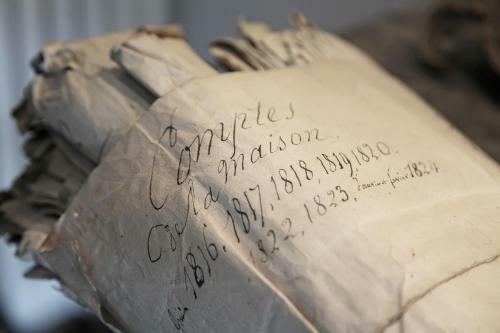 Comptes
de la maison
1816, 1817, 1818, 1819, 1820.
1822, 1823, Janvier février 1824